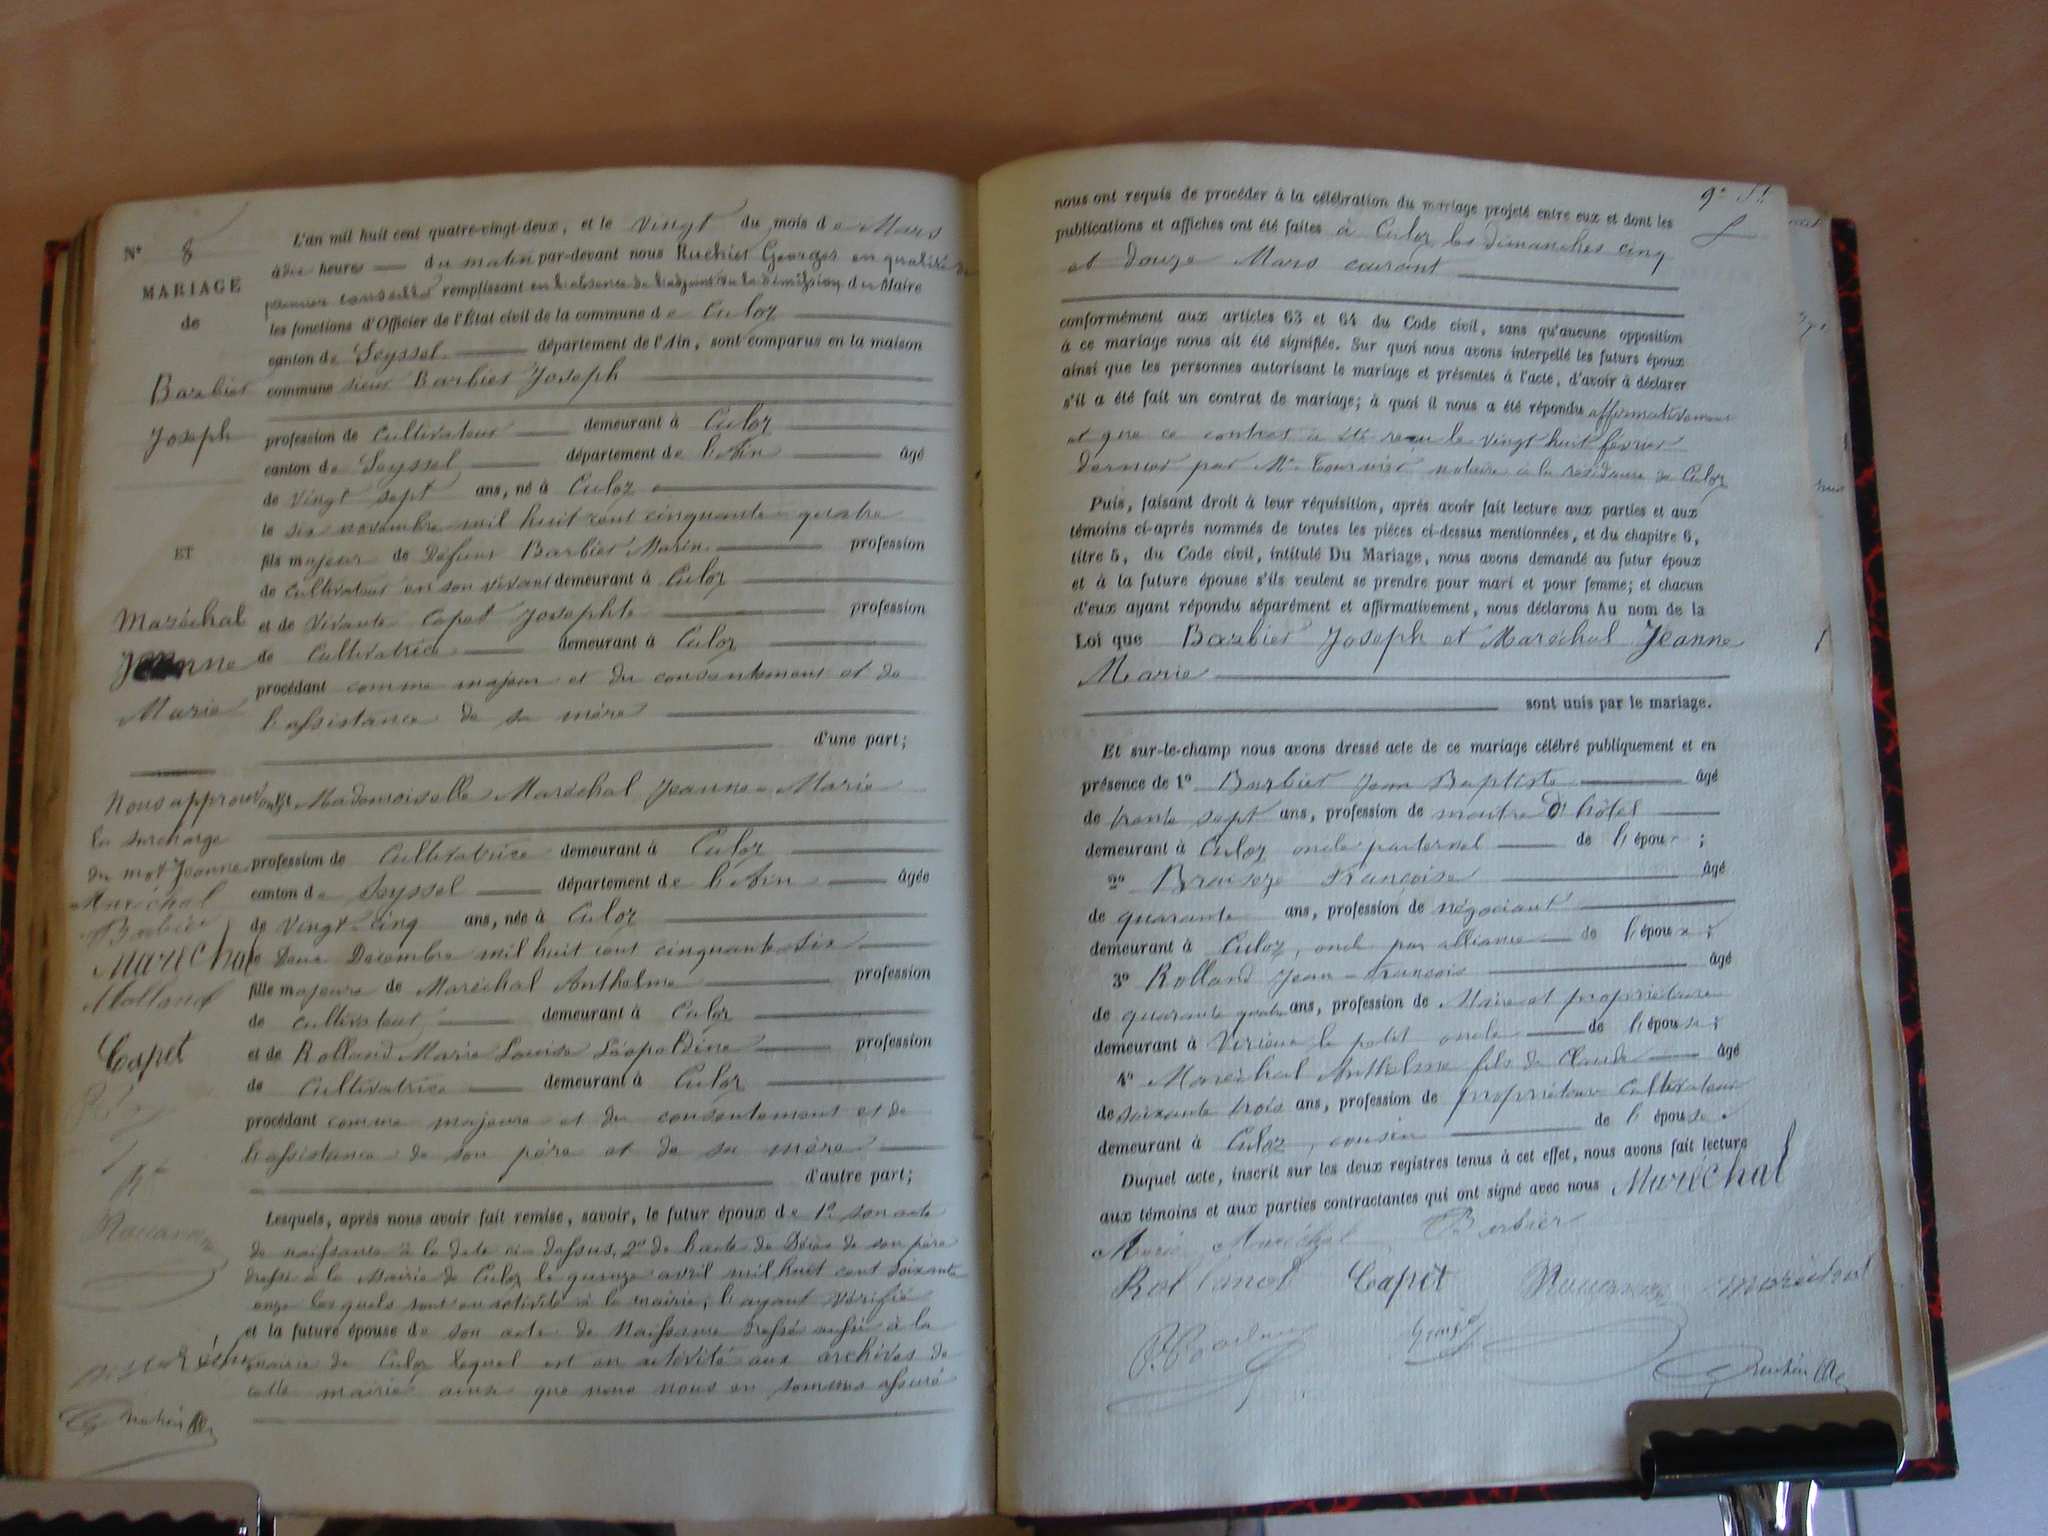 N° 8
MARIAGE
de
Barbier
Joseph
ET
Maréchal
Jeanne
Marie
Nous approuvons
la surcharge
du mot Jeanne
Maréchal
Barbier
Maréchal
Rolland
Capet
L'an mil huit cent quatre-vingt-deux, et le Vingt du mois de Mars
à dix heures du matin par-devant nous Ruchier Georges en qualité de
premier conseiller remplissant en l'absence de l'adjoint vu la démission du Maire
les fonctions d'Officier de l'État civil de la commune de Culoz
canton de Seyssel département de l'Ain, sont comparus en la maison
commune sieur Barbier Joseph
profession de Cultivateur demeurant à Culoz
canton de Seyssel département de l'Ain âgé
de vingt sept ans, né à Culoz
le six novembre mil huit cent cinquante-quatre
fils majeur de Défunt Barbier Marin profession
de cultivateur en son vivant demeurant à Culoz
et de Vivante Capet Josephte profession
de Cultivatrice demeurant à Culoz
procédant comme majeur et du consentement et de
l'assistance de sa mère
d'une part;
Mademoiselle Maréchal Jeanne-Marie
profession de Cultivatrice demeurant à Culoz
canton de Seyssel département de l'Ain âgée
de Vingt-Cinq ans, née à Culoz
le Deux Décembre mil huit cent cinquante-six
fille majeure de Maréchal Anthelme profession
de cultivateur demeurant à Culoz
et de Rolland Marie Louise Léopoldine profession
de Cultivatrice demeurant à Culoz
procédant comme majeure et du consentement et de
l'assistance de son père et de sa mère
d'autre part;
Lesquels, après nous avoir fait remise, savoir, le futur époux de 1° son acte
de naissance à la date ci-dessus, 2° de l'acte de Décès de son père
dressé à la Mairie de Culoz le quinze avril mil huit cent soixante
onze lesquels sont en activité à la mairie, l'ayant vérifié
et la future épouse de son acte de Naissance dressé aussi à la
mairie de Culoz lequel est en activité aux archives de
cette mairie ainsi que nous nous en sommes assuré
9e
nous ont requis de procéder à la célébration du mariage projeté entre eux et dont les
publications et affiches ont été faites à Culoz les dimanches cinq
et Douze Mars courant
conformément aux articles 63 et 64 du Code civil, sans qu'aucune opposition
à ce mariage nous ait été signifiée. Sur quoi nous avons interpellé les futurs époux
ainsi que les personnes autorisant le mariage et présentes à l'acte, d'avoir à déclarer
s'il a été fait un contrat de mariage; à quoi il nous a été répondu affirmativement
et que ce contrat a été reçu le vingt huit février
dernier par Me Tournier notaire à la résidence de Culoz
Puis, faisant droit à leur réquisition, après avoir fait lecture aux parties et aux
témoins ci-après nommés de toutes les pièces ci-dessus mentionnées, et du chapitre 6,
titre 5, du Code civil, intitulé Du Mariage, nous avons demandé au futur époux
et à la future épouse s'ils veulent se prendre pour mari et pour femme; et chacun
d'eux ayant répondu séparément et affirmativement, nous déclarons Au nom de la
Loi que Barbier Joseph et Maréchal Jeanne
Marie
sont unis par le mariage.
Et sur-le-champ nous avons dressé acte de ce mariage célébré publiquement et en
présence de 1° Barbier Jean Baptiste âgé
de trente sept ans, profession de maitre d'hôtel
demeurant à Culoz oncle paternel de l'époux;
2° Françoise âgé
de quarante ans, profession de négociant
demeurant à Culoz, oncle par alliance de l'époux;
3° Rolland Jean-François âgé
de quarante quatre ans, profession de Maire et propriétaire
demeurant à Virieu le petit oncle de l'épouse;
4° Maréchal Anthelme fils de Claude âgé
de soixante trois ans, profession de propriétaire cultivateur
demeurant à Culoz, cousin de l'épouse.
Duquel acte, inscrit sur les deux registres tenus à cet effet, nous avons fait lecture
aux témoins et aux parties contractantes qui ont signé avec nous Maréchal
Marie Maréchal Barbier
Rolland Capet Maréchal